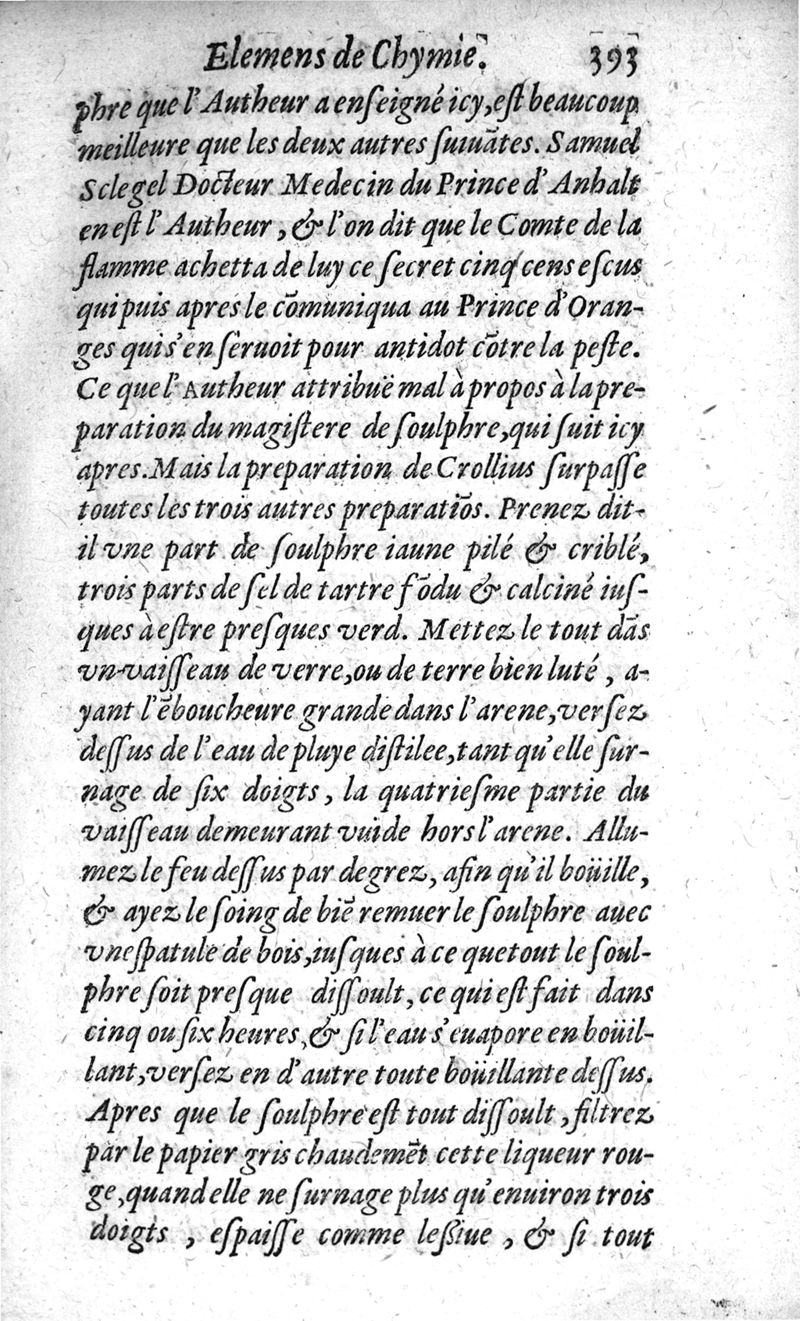 Elemens de Chymie. 393
phre que l'Autheur a enſeigné icy, eſt beaucoup
meilleure que les deux autres ſuiuātes. Samuel
Sclegel Docteur Medecin du Prince d'Anhalt
en eſt l'Autheur, & l'on dit que le Comte de la
flamme achetta de luy ce ſecret cinq cens eſcus
qui puis apres le cōmuniqua au Prince d'Oran-
ges qui s'en ſeruoit pour antidot cōtre la peſte.
Ce que l'Autheur attribuë mal à propos à la pre-
paration du magiſtere de ſoulphre, qui ſuit icy
apres. Mais la preparation de Crollius ſurpaſſe
toutes les trois autres preparatiōs. Prenez dit-
il vne part de ſoulphre iaune pilé & criblé,
trois parts de ſel de tartre fōdu & calciné iuſ-
ques à eſtre preſques verd. Mettez le tout dās
vn vaiſſeau de verre, ou de terre bien luté, a-
yant l'ēboucheure grande dans l'arene, verſez
deſſus de l'eau de pluye diſtilee, tant qu'elle ſur-
nage de ſix doigts, la quatrieſme partie du
vaiſſeau demeurant vuide hors l'arene. Allu-
mez le feu deſſus par degrez, afin qu'il boüille,
& ayez le ſoing de biē remuer le ſoulphre auec
vne ſpatule de bois, iuſques à ce que tout le ſoul-
phre ſoit preſque diſſoult, ce qui eſt fait dans
cinq ou ſix heures, & ſi l'eau s'euapore en boüil-
lant, verſez en d'autre toute boüillante deſſus.
Apres que le ſoulphre eſt tout diſſoult, filtrez
par le papier gris chaudemēt cette liqueur rou-
ge, quand elle ne ſurnage plus qu'enuiron trois
doigts, eſpaiſſe comme leſſiue, & ſi tout